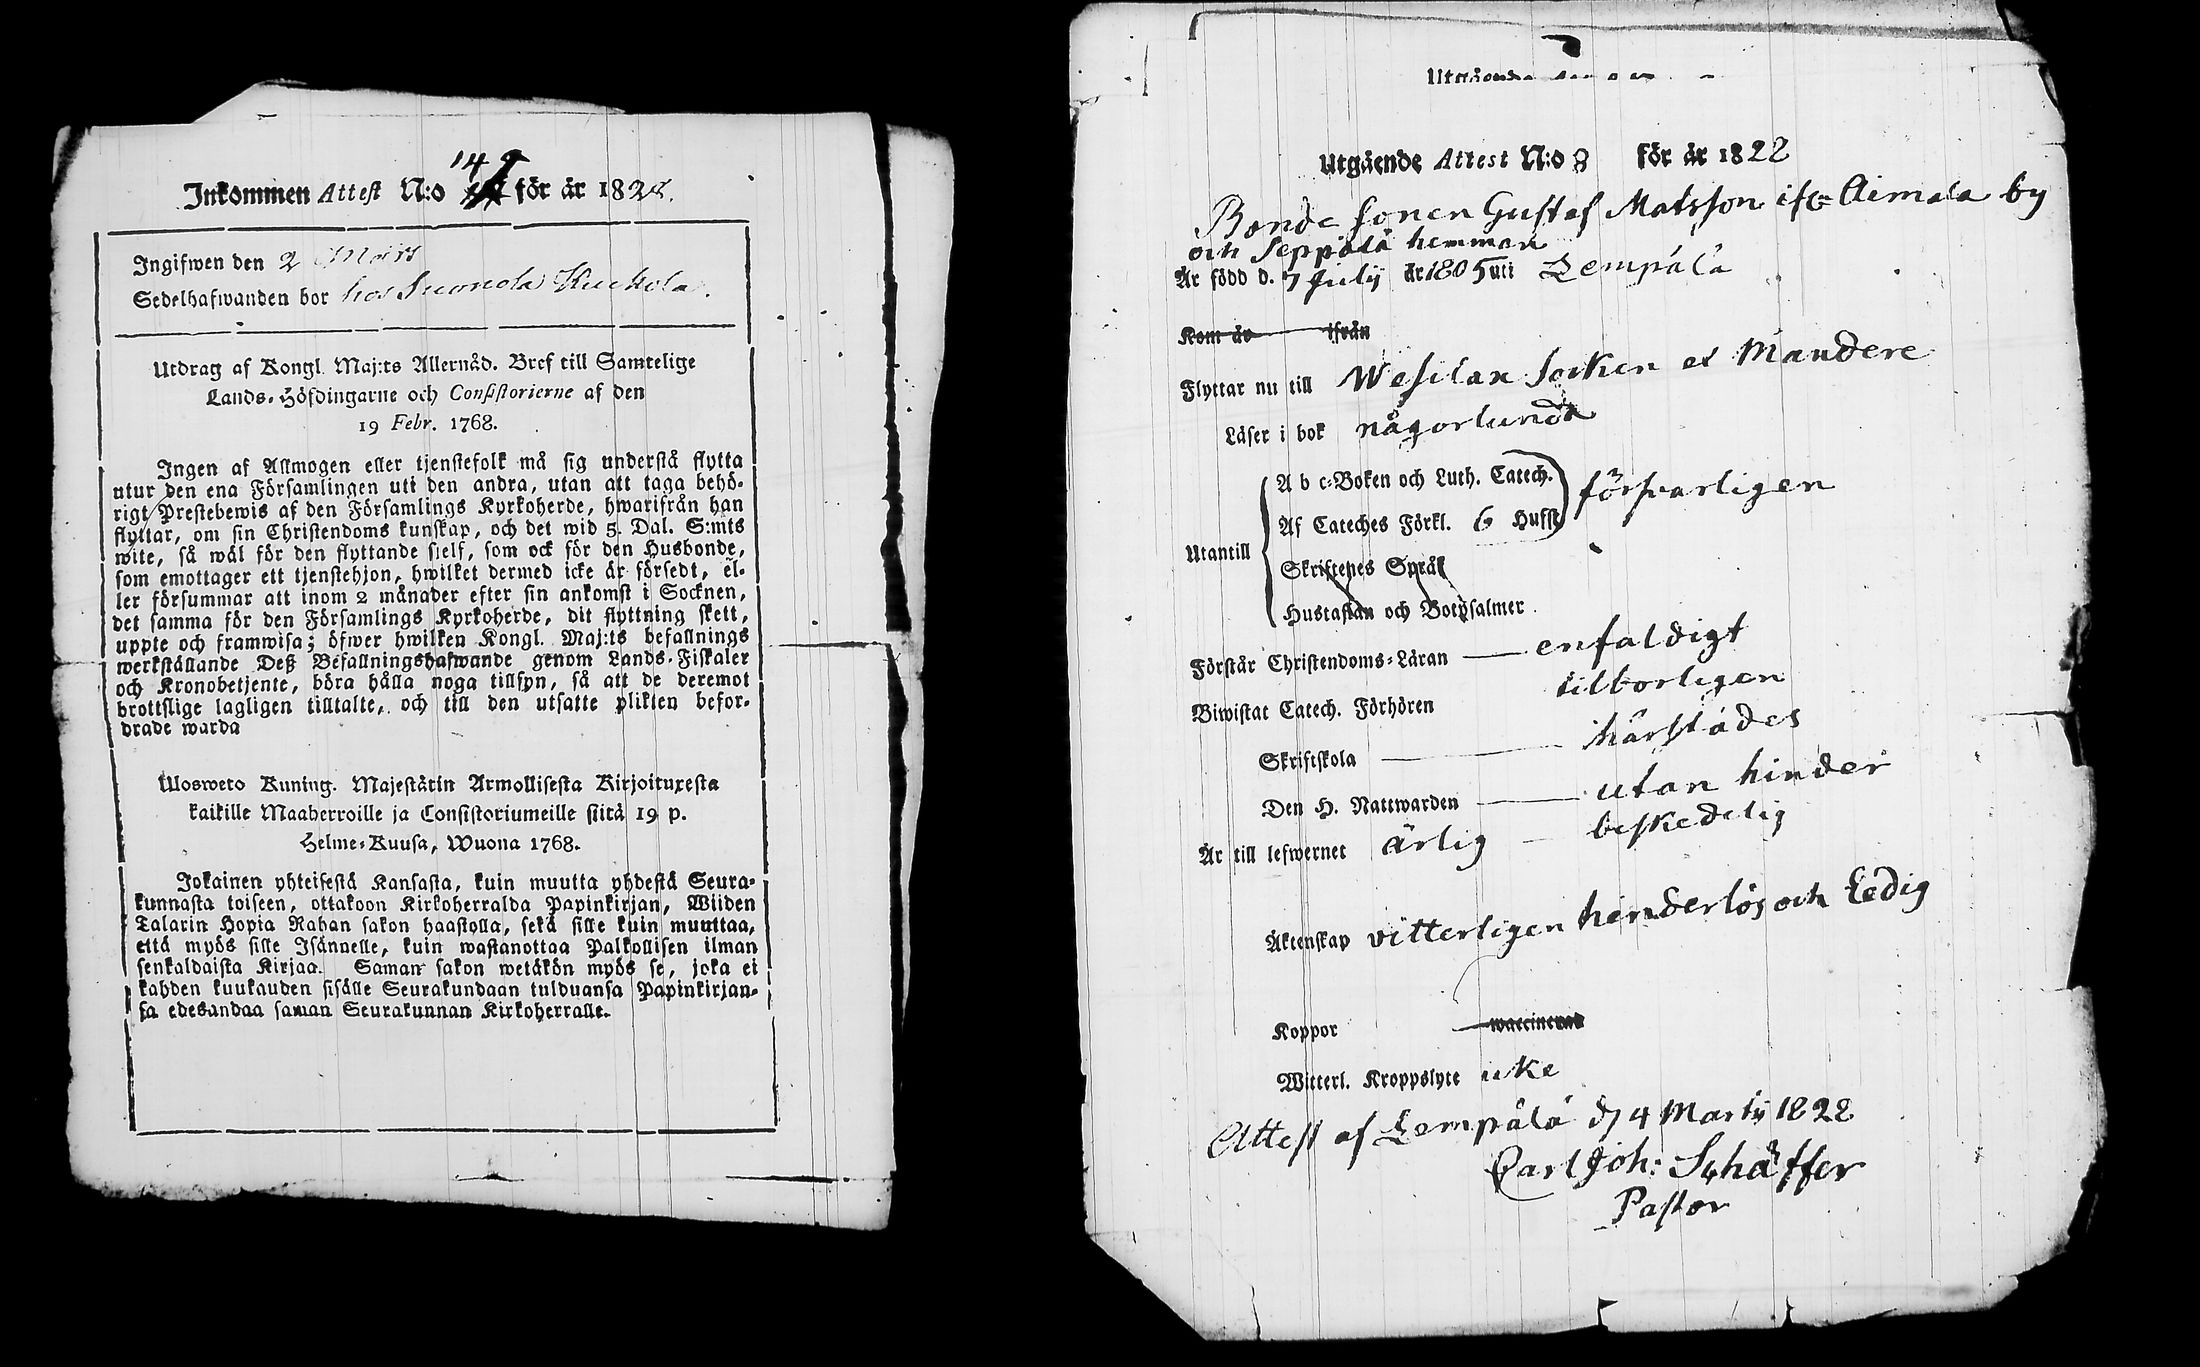 Inkommen Attest N:o 149 för är 1828.
Ingifwen den 2 Mars
Sedelhafwanden bor hos Suonola Kuckola.
Utdrag af Kongl. Maj:ts Allernåd. Bref till Samtelige
Lands-Höfdingarne och Consistorierne af den
19 Febr. 1768.
Ingen af Allmogen eller tjenstefolk må sig understå flytta
utur den ena Församlingen uti den andra, utan att taga behö-
rigt Prestebewis af den Församlings Kyrkoherde, hwarifrån han
flyttar, om sin Christendoms kunskap, och det wid 5. Dal. S:mts
wite, så wäl för den flyttande sjelf, som ock för den Husbonde,
som emottager ett tjenstehjon, hwilket dermed icke är försedt, el-
ler försummar att inom 2 månader efter sin ankomst i Socknen,
det samma för den Församlings Kyrkoherde, dit flyttning skett,
uppte och framwisa; öfwer hwilken Kongl. Maj:ts befallnings
werkställande Deß Befallningshafwande genom Lands-Fiskaler
och Kronobetjente, böra hålla noga tillsyn, så att de deremot
brottslige lagligen tilltalte, och till den utsatte plikten befor-
drade warda
Ulosweto Kuning. Majestätin Armollisesta Kirjoituxesta
kaikille Maaherroille ja Consistoriumeille siitä 19 p.
Helme-Kuusa, Wuona 1768.
Jokainen yhteisestä Kansasta, kuin muutta yhdestä Seura-
kunnasta toiseen, ottakoon Kirkoherralda Papinkirjan, Wiiden
Talarin Hopia Rahan sakon haastolla, sekä sille kuin muuttaa,
että myös sille Isännelle, kuin wastanottaa Palkollisen ilman
senkaldaista Kirjaa. Saman sakon wetäkön myös se, joka ei
kahden kuukauden sisälle Seurakundaan tulduansa Papinkirjan-
sa edesandaa saman Seurakunnan Kirkoherralle.
Utgående Attest N:o 8 för är 1828
Bonde sonen Gustaf Matsson ifr Aimala by
och Seppälä hemman
Är född d. 7 July år 1805 uti Lempälä
Kom år ifrån
Flyttar nu till Wesilax Socken et Mandere
Läser i bok någorlunda
Utantill
A b c-Boken och Luth. Catech.
Af Cateches Förkl. 6 Hufst
försvarligen
Skriftenes Språk
Hustaflan och Botpsalmer
Förstår Christendoms-Läran enfaldigt
Biwistat Catech. Förhören tilborligen
Skriftskola härstädes
Den H. Nattwarden utan hinder
Är till lefwernet ärlig beskedelig
Äktenskap vitterligen hinderlös och Ledig
Koppor waccinerad
Witterl. Kroppslyte icke
Attest af Lempälä d 4 Martij 1828
Carl Joh: Schäffer
Pastor